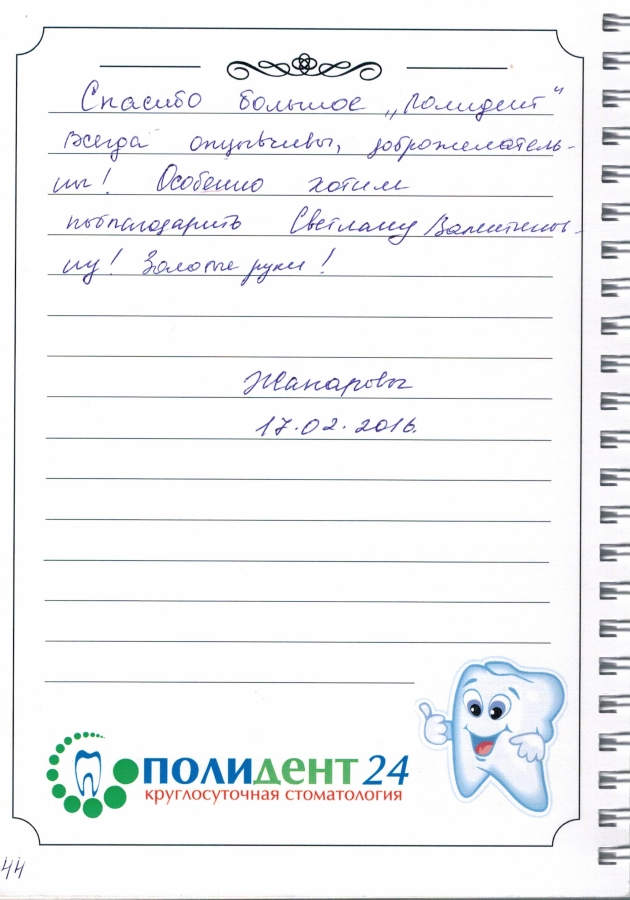 Спасибо большое „Полидент"
Всегда отзывчивы, доброжелатель-
ны! Особенно хотим
поблагодарить Светлану Валентинов-
ну! Золотые руки!
Жанаровы
17.02.2016.
ПОЛИДЕНТ 24
круглосуточная стоматология
44